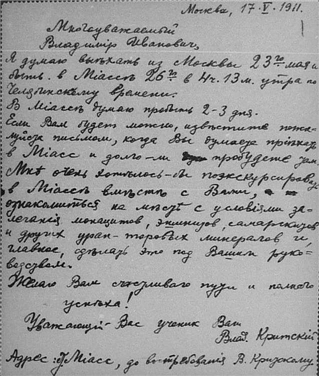 Москва, 17 - V - 1911.
Многоуважаемый
Владимір Иванович,
Я думаю выѣхать из Москвы 23го мая и
быть в Міассѣ 26го в 4 ч. 13 м. утра по
Челябинскому времени.
В Міассѣ думаю пробыть 2-3 дня.
Если Вам будет можно, известите пожа-
луйста письмом, когда Вы думаете пріѣхать
в Міасс и долго-ли пробудете там.
Мнѣ очень хотѣлось-бы поэкскурсировать
в Міассѣ вмѣстѣ с Вами,
ознакомиться на мѣстѣ с условіями за-
леганія монацитов, эшинитов, самарскитов
и других уран-торовых минералов и,
главное, сдѣлать это под Вашем руко-
водством.
Желаю Вам счастливаго пути и полнаго
успѣха,
Уважающій Вас ученик Ваш
Влад. Критскій
Адрес: Міасс, до востребованія В. Критскому